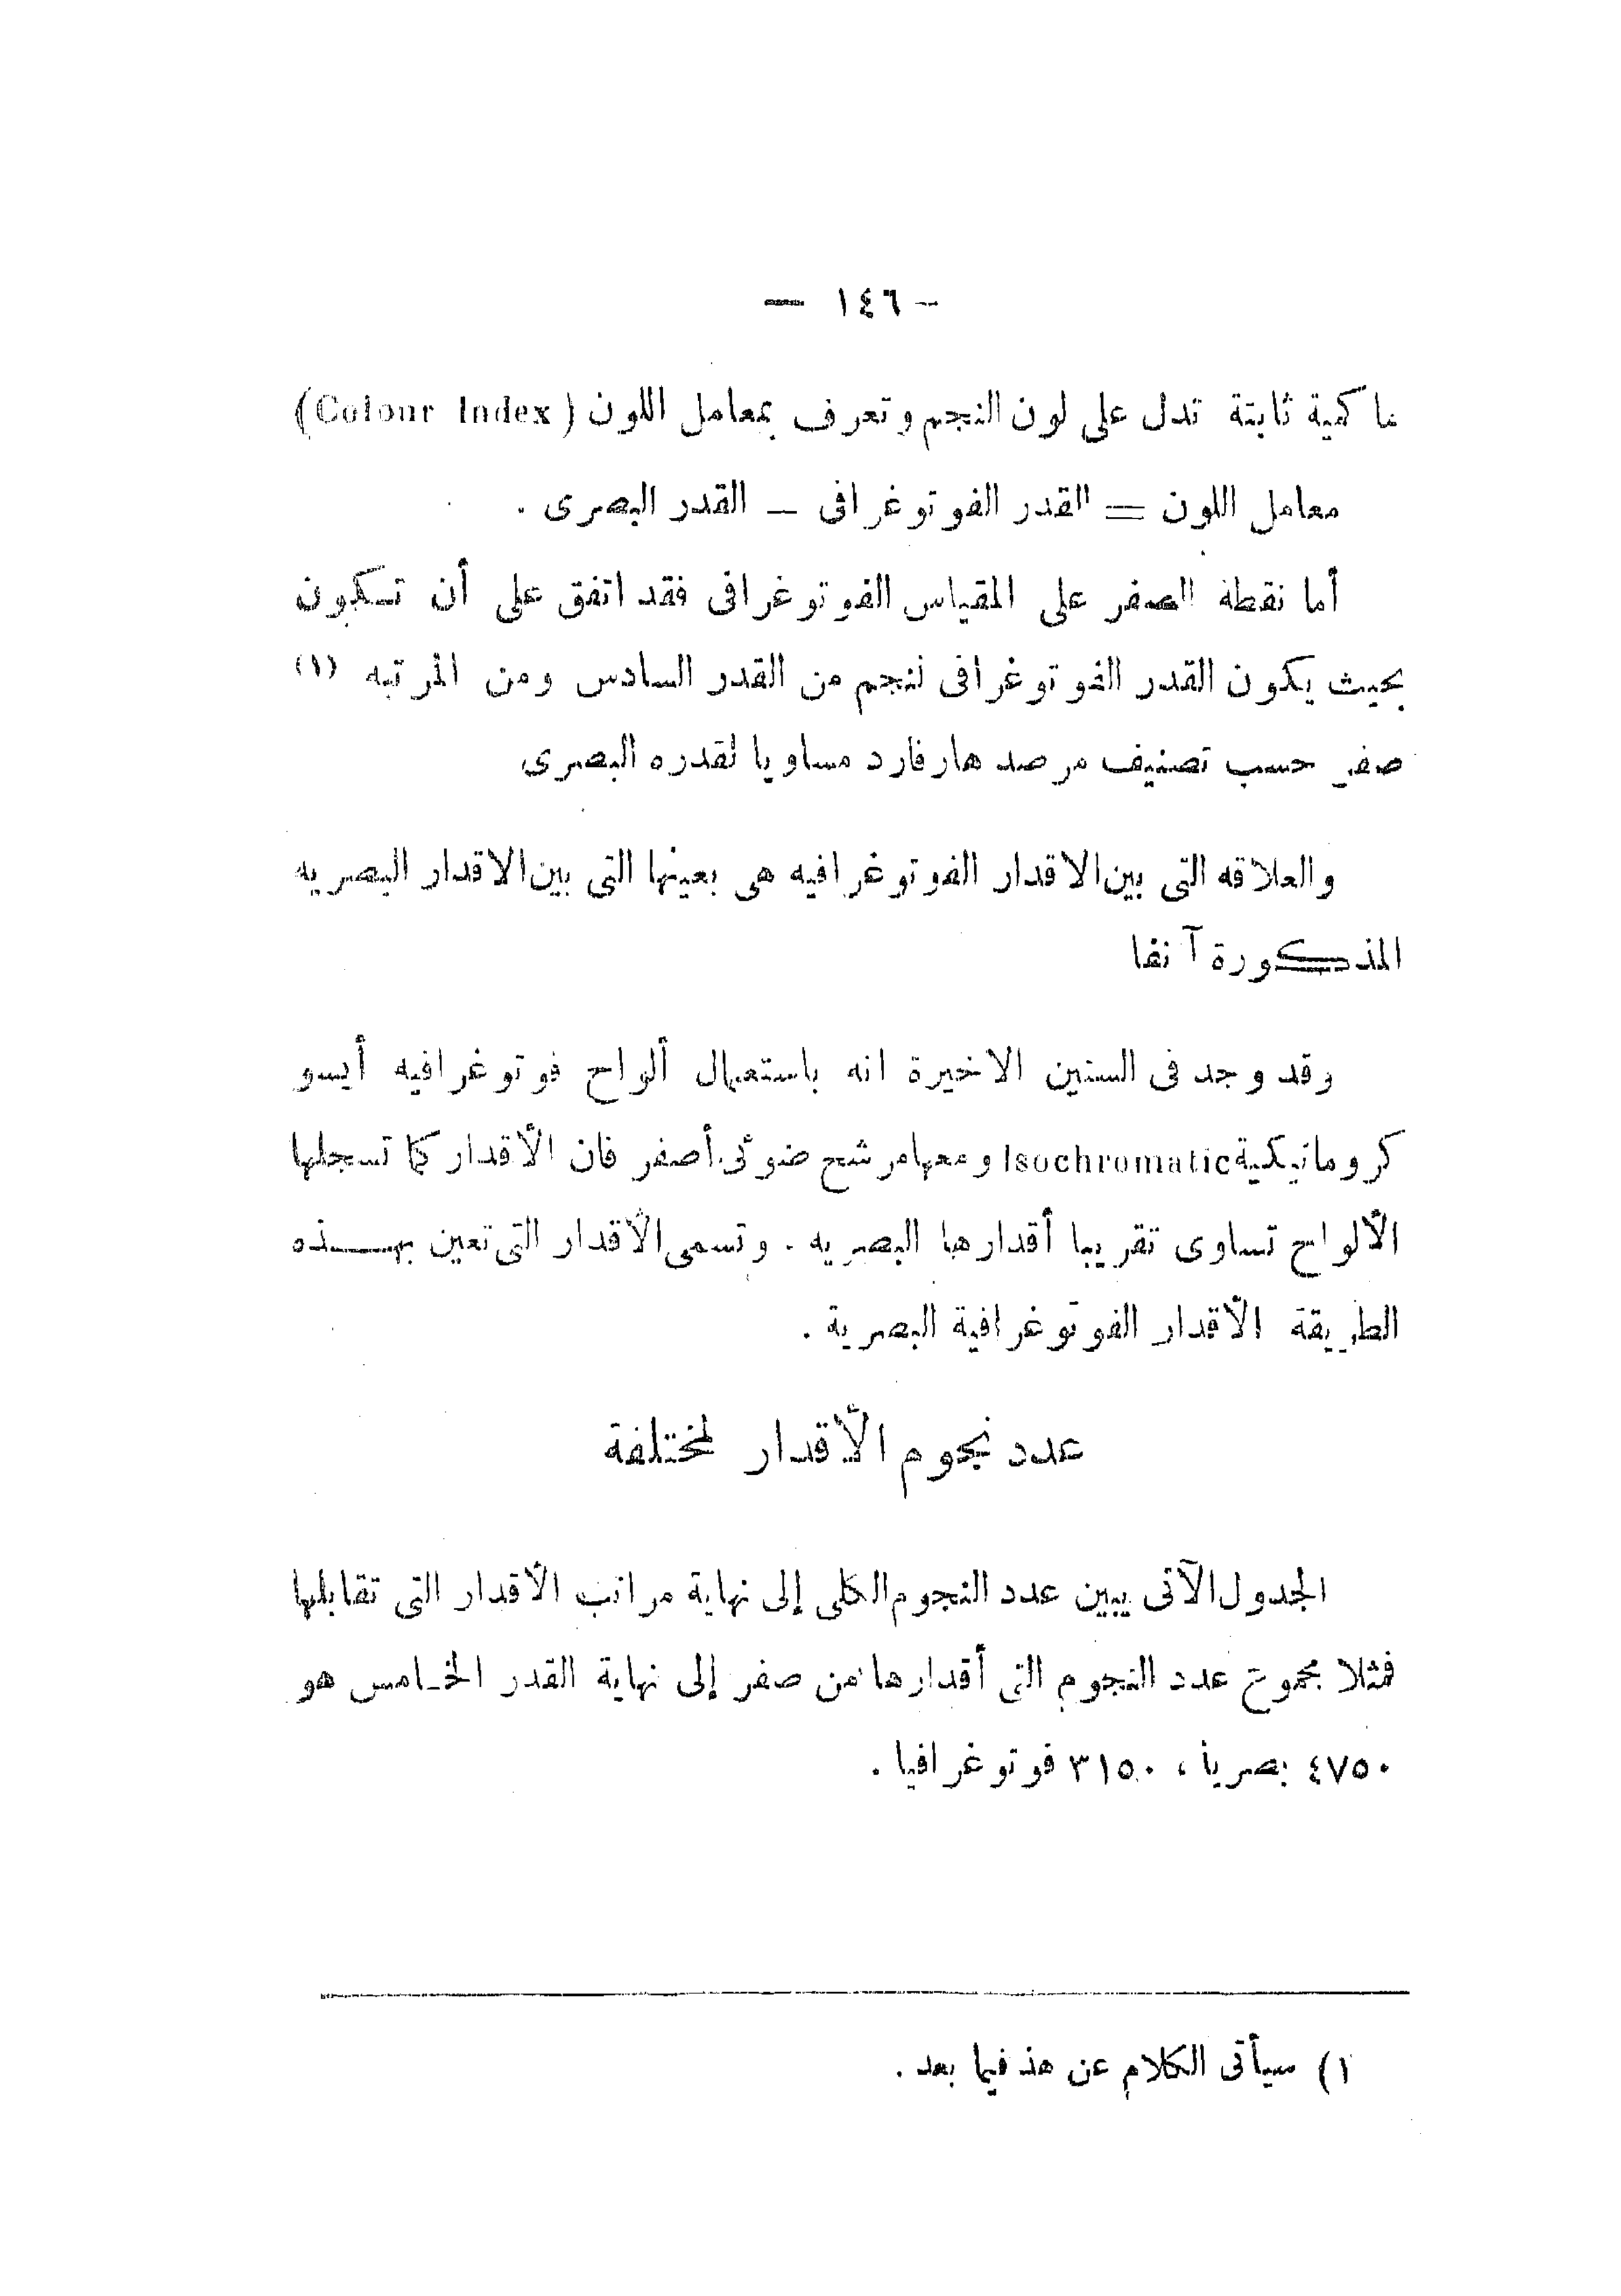 — ١٤٦ —
ما كمية ثابتة تدل على لون النجم وتعرف بمعامل اللون (Colour Index)
معامل اللون = القدر الفوتوغرافى – القدر البصرى .
أما نقطة الصفر على المقياس الفوتوغرافى فقد اتفق على أن تكون
بحيث يكون القدر الفوتوغرافى لنجم من القدر السادس ومن المرتبه (١)
صفر حسب تصنيف مرصد هارفارد مساويا لقدره البصرى
والعلاقه التى بين الاقدار الفوتوغرافيه هى بعينها التى بين الاقدار البصريه
المذكورة آنفا
وقد وجد فى السنين الاخيرة انه باستعمال ألواح فوتوغرافيه أيسو
كروماتيكية Isochromatic ومعها مرشح ضوئى أصفر فان الأقدار كما تسجلها
الألواح تساوى تقريبا أقدارها البصريه . وتسمى الأقدار التى تعين بهذه
الطريقة الأقدار الفوتوغرافية البصرية .
عدد نجوم الأقدار لمختلفة
الجدول الآتى يبين عدد النجوم الكلى إلى نهاية مراتب الأقدار التى تقابلها
فمثلا مجموع عدد النجوم التى أقدارها من صفر إلى نهاية القدر الخامس هو
٤٧٥٠ بصريا ، ٣١٥٠ فوتوغرافيا .
١) سيأتى الكلام عن هذ فيما بعد .